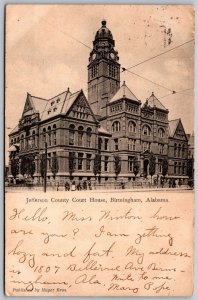 Jefferson County Court House, Birmingham, Alabama.
Hello, Miss Winton how
are you? I am getting
lazy and fat. My address
is 1807 Bellevue Ave Birm-
ingham, Ala. Write to me
Mary Pope
Published by Roper Bros.